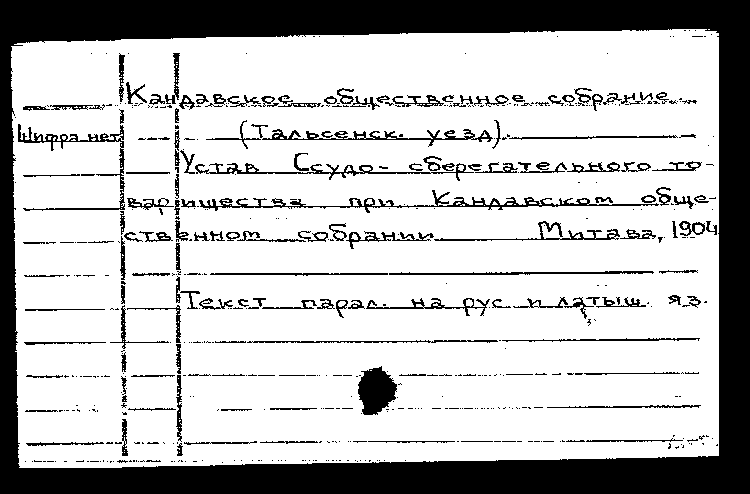 Кандавское общественное собрание.
Шифра нет
(Тальсенск. уезд).
Устав Ссудо-сберегательного то-
варищества при Кандавском обще-
ственном собрании Митава, 1904
Текст парал. на рус и латыш. яз.